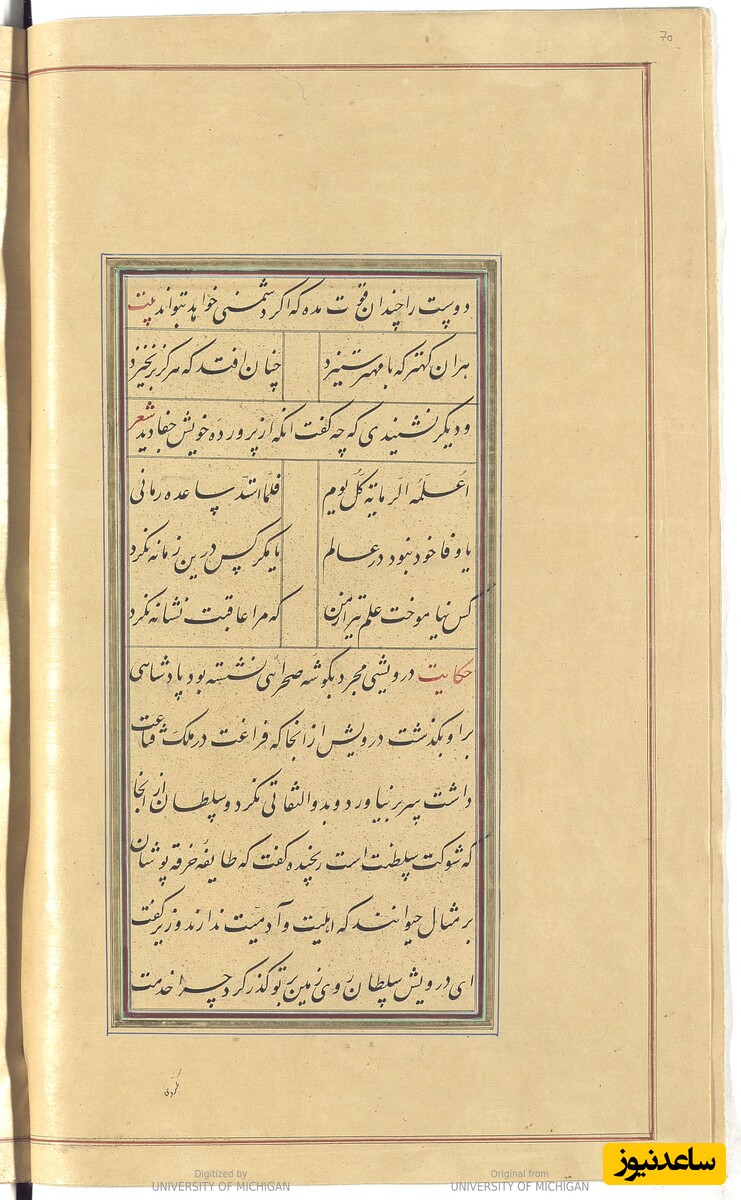 70
دوست را چندان قوت مده که اکر دشمنی خواهد بتواند بیت
هران کهتر که با مهتر ستیزد چنان افتد که هرکز برنخیزد
و دیکر نشنیدی که چه کفت انکه از پرورده خویش جفا دید شعر
اعلّمه الرمایة کلّ یوم فلمّا اشتدّ ساعده رمانی
یا وفا خود نبود در عالم یا مکر کس درین زمانه نکرد
کس نیاموخت علم تیر از من که مرا عاقبت نشانه نکرد
حکایت درویشی مجرد بکوشه صحرائی نشسته بود پادشاهی
براو بکذشت درویش از انجا که فراغت در ملک قناعت
داشت سر بر نیاورد و بدو التفاتی نکرد و سلطان از انجا
که شوکت سلطنت است رنجیده کفت که طایفه خرقه پوشان
بر مثال حیوانند که اهلیت و آدمیت ندارند وزیر کفت
ای درویش سلطان روی زمین بر تو کذر کرد چرا خدمت
نکردی
Digitized by
UNIVERSITY OF MICHIGAN
Original from
UNIVERSITY OF MICHIGAN
ساعدنیوز